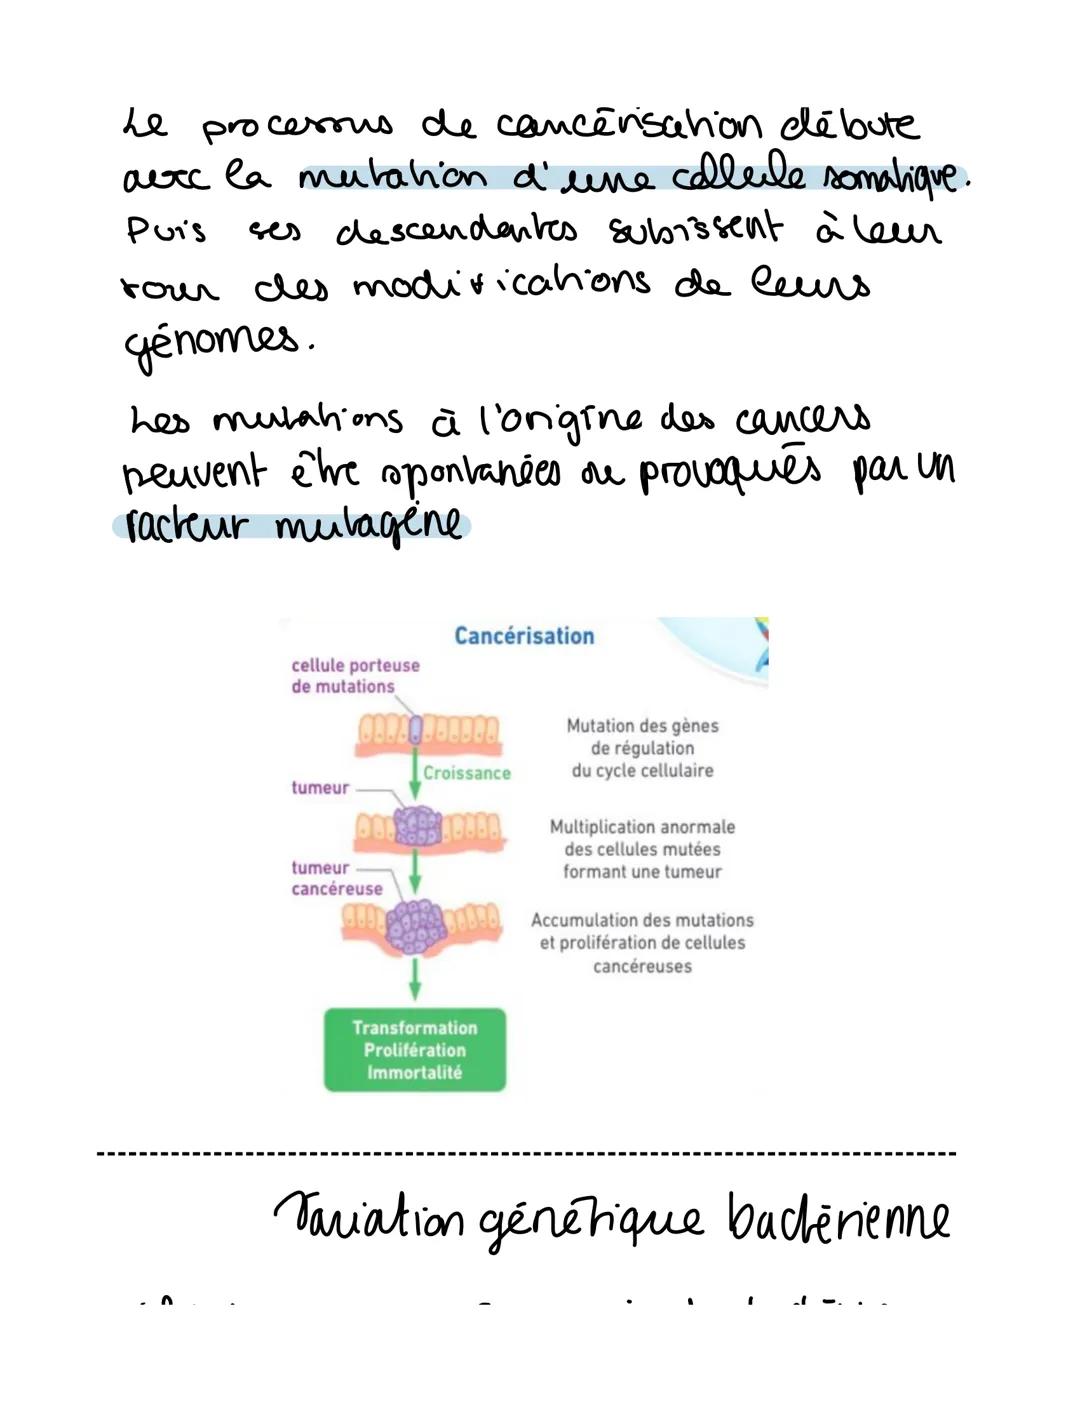 Le processus de cancérisation débute
avec la mutation d'une cellule somatique.
Puis ses descendantes subissent à leur
tour des modifications de leurs
génomes.
Les mutations à l'origine des cancers
peuvent être spontanées ou provoqués par un
facteur mutagène
Cancérisation
cellule porteuse
de mutations
Mutation des gènes
de régulation
du cycle cellulaire
Croissance
tumeur
Multiplication anormale
des cellules mutées
formant une tumeur
tumeur
cancéreuse
Accumulation des mutations
et prolifération de cellules
cancéreuses
Transformation
Prolifération
Immortalité
Variation génétique bactérienne